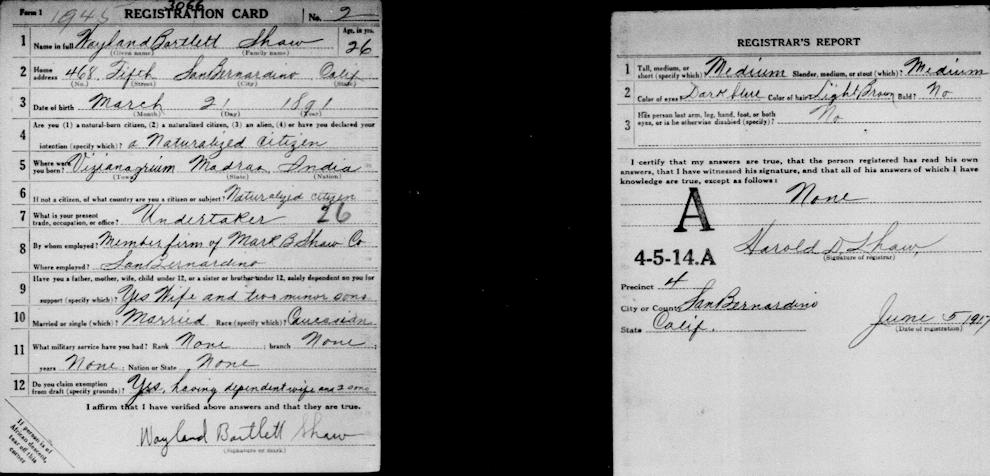 Form 1 1945 3066 REGISTRATION CARD No. 2
1 Name in full Wayland Bartlett Shaw Age, in yrs. 26
(Given name) (Family name)
2 Home address 468 Fifth San Bernardino Calif
(No.) (Street) (City) (State)
3 Date of birth March 21 1891
(Month) (Day) (Year)
4 Are you (1) a natural-born citizen, (2) a naturalized citizen, (3) an alien, (4) or have you declared your
intention (specify which)? a Naturalized citizen
5 Where were you born? Vizianagrium Madras India
(Town) (State) (Nation)
6 If not a citizen, of what country are you a citizen or subject? Naturalized citizen
7 What is your present trade, occupation, or office? Undertaker 26
8 By whom employed? Member firm of Mark B Shaw Co
Where employed? San Bernardino
9 Have you a father, mother, wife, child under 12, or a sister or brother under 12, solely dependent on you for
support (specify which)? Yes Wife and two minor sons
10 Married or single (which)? Married Race (specify which)? Caucasian
11 What military service have you had? Rank None ; branch None ;
years None ; Nation or State None
12 Do you claim exemption from draft (specify grounds)? Yes, having dependent wife and 2 sons
I affirm that I have verified above answers and that they are true.
Wayland Bartlett Shaw
(Signature or mark)
If person is of
African descent,
tear off this
corner
REGISTRAR'S REPORT
1 Tall, medium, or short (specify which)? Medium Slender, medium, or stout (which)? Medium
2 Color of eyes? Dark blue Color of hair? Light Brown Bald? No
3 Has person lost arm, leg, hand, foot, or both
eyes, or is he otherwise disabled (specify)? No
I certify that my answers are true, that the person registered has read his own
answers, that I have witnessed his signature, and that all of his answers of which I have
knowledge are true, except as follows:
None
A
4-5-14.A
Harold D. Shaw,
(Signature of registrar)
Precinct 4
City or County San Bernardino
State Calif.
June 5 1917
(Date of registration)